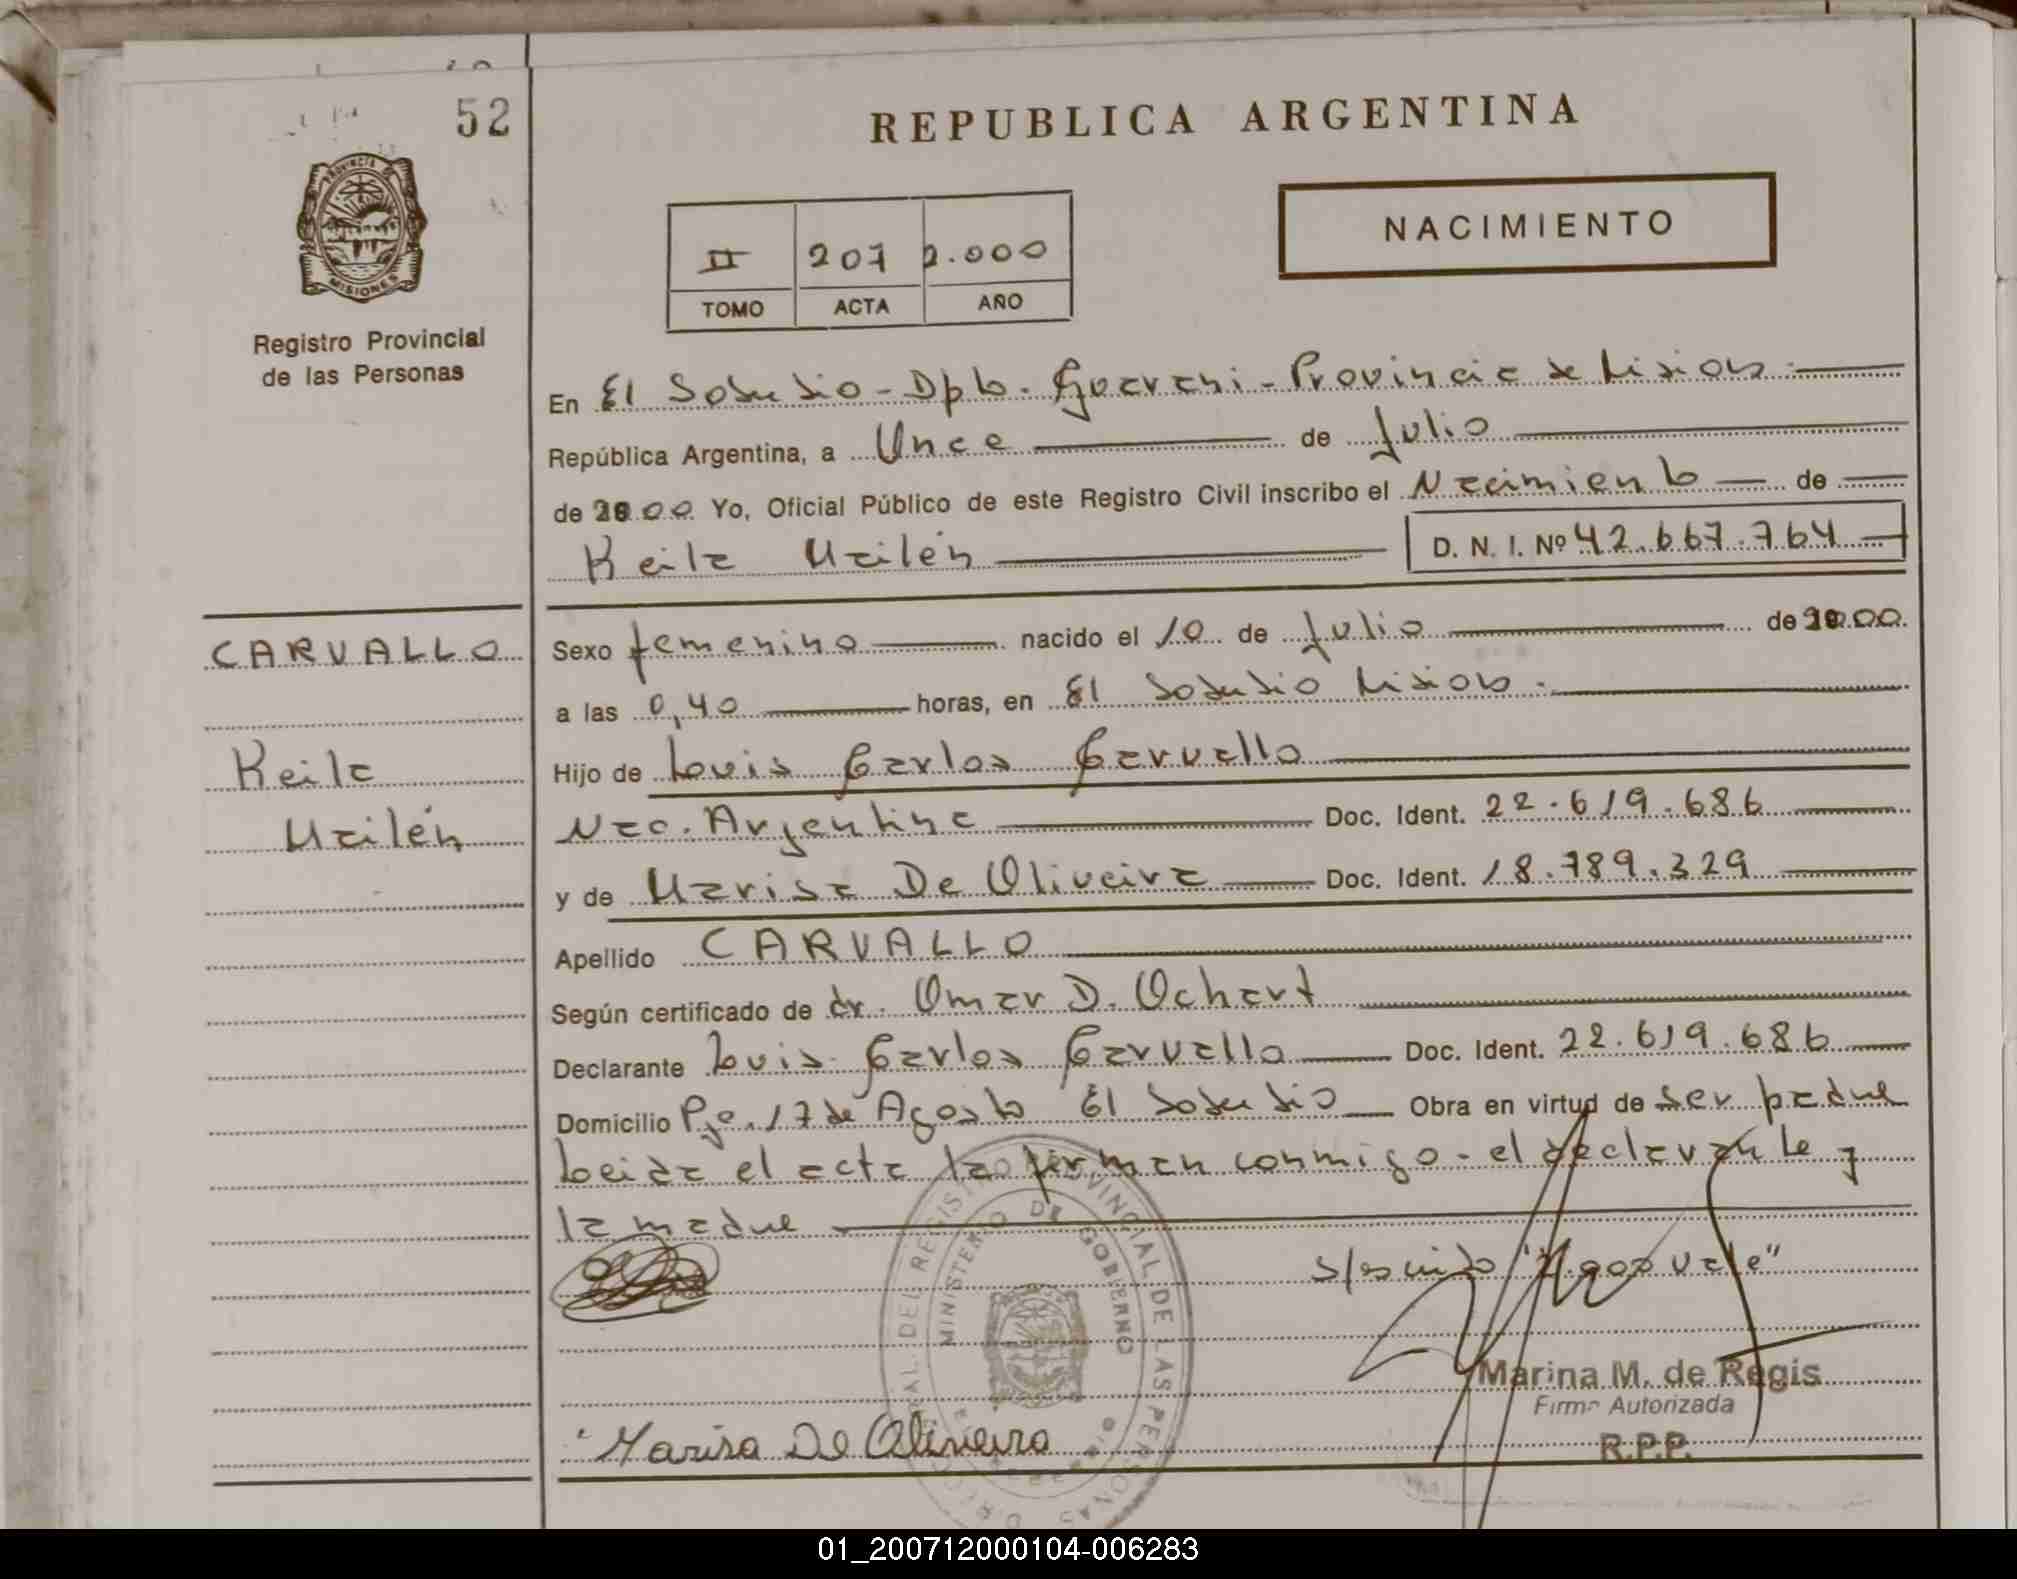 52
REPUBLICA ARGENTINA
PROVINCIA DE
MISIONES
Registro Provincial
de las Personas
NACIMIENTO
II 207 2.000
TOMO ACTA AÑO
En El Soberbio - Dpto. Guarani - Provincia de Misiones
República Argentina, a Once de Julio
de 2000 Yo, Oficial Público de este Registro Civil inscribo el Nacimiento de
Keila Mailén D. N. I. Nº 42.667.764
CARVALLO
Keila
Mailén
Sexo femenino nacido el 10 de Julio de 2000.
a las 0,40 horas, en El Soberbio Misiones.
Hijo de Luis Carlos Carvallo
Nac. Argentina Doc. Ident. 22.619.686
y de Marisa De Oliveira Doc. Ident. 18.789.329
Apellido CARVALLO
Según certificado de dr. Omar D. Ochart
Declarante Luis Carlos Carvallo Doc. Ident. 22.619.686
Domicilio Pje. 17 de Agosto El Soberbio Obra en virtud de ser padre
Leida el acta la firman conmigo - el declarante y
la madre
s/escrito
vale"
REGISTRO PROVINCIAL DE LAS PERSONAS
MINISTERIO DE GOBIERNO
Marina M. de Regis
Firma Autorizada
R.P.P.
Marisa De Oliveira
01_200712000104-006283